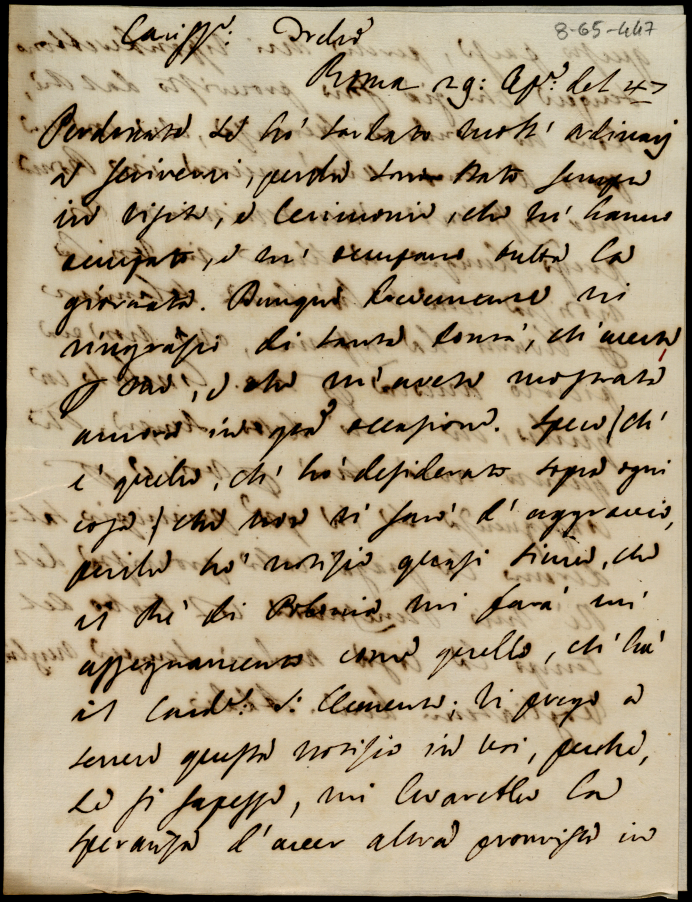 8-65-447
Cariss.º
Roma 29: Ap.e del 47
Perdonate se hò tardato molti ordinarj
à scrivervi, perche sono stato sempre
in visite, e cerimonie, che m'hanno
occupato, e m'occupano tutta la
giornata. Dunque vi
ringrazio di tanta bontà, ch'avete
, e che m'avete mostrata
ancora in occasione. Spero (ch'
è quello, ch'hò desiderato sopra ogni
cosa) che non vi sarò d'aggravio,
perche hò notizia quasi sicura, che
il Rè di Polonia mi farà un'
assegnamento come quello, ch'hà
il Card.l S. Clemente; Vi prego à
tenere questa notizia in voi, perche,
se si sapesse, mi levarebbe la
speranza d'aver altra provista in